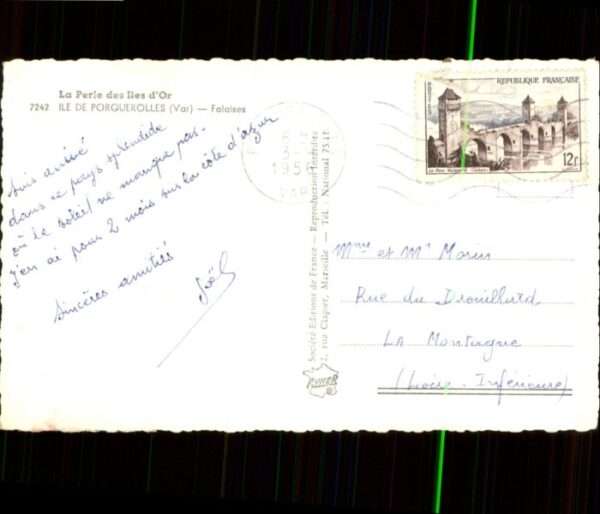 La Perle des Iles d'Or
7242 ILE DE PORQUEROLLES (Var) — Falaises
Suis arrivé
dans ce pays splendide
où le soleil ne manque pas.
J'en ai pour 2 mois sur la côte d'azur
Sincères amitiés
Joël
Société Editions de France — Reproduction Interdite
2, rue Clapier, Marseille — Tél. National 75-1
REPUBLIQUE FRANÇAISE
12F
Mme et Mr Morin
Rue du Drouillard
LA Montagne
(Loire-Inférieure)